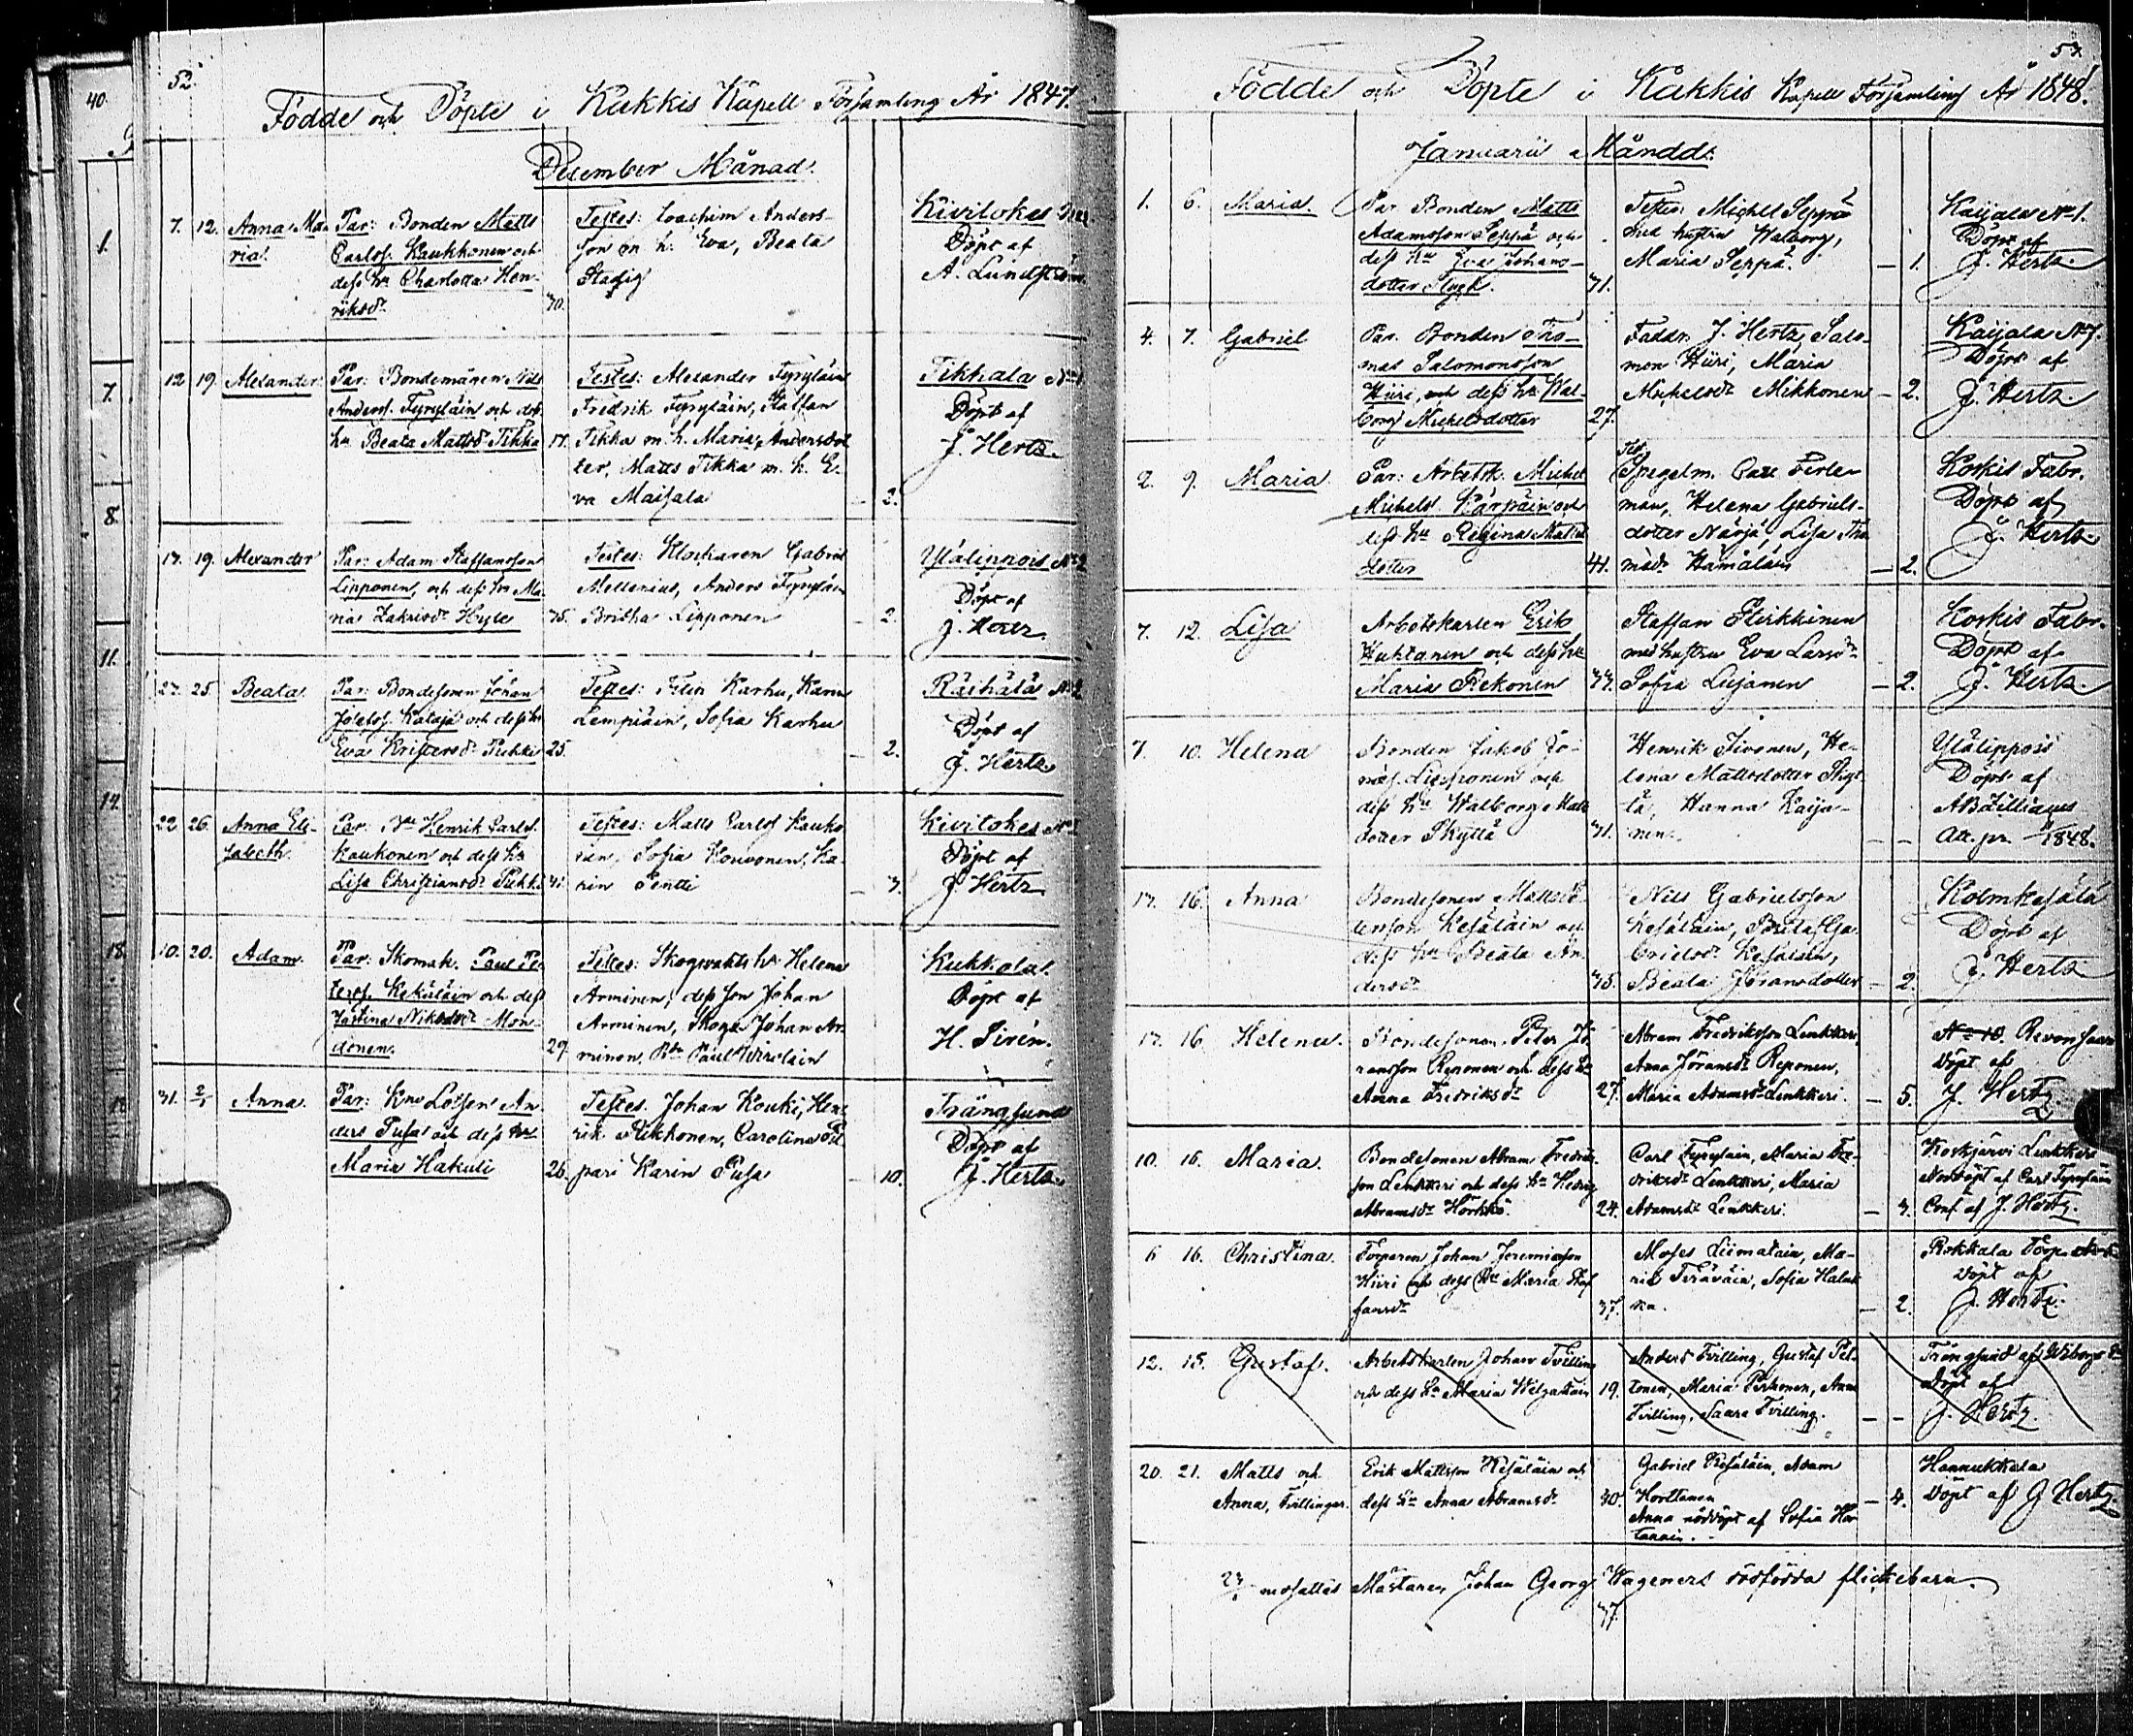 52.
Födde och Döpte i Kakkis Kapell Församling År 1847.
December Månad.
7. 12. Anna Ma-
ria.
Par: Bonden Matts
Carlss. Kaukkonen och
dess h. Charlotta Hen-
riksdr
30.
Testes: Joachim Anders-
son m. h. Eva, Beata
Stadig
Kivilokas
Döpt af
A. Lundström.
12 19. Alexander.
Par: Bondemågen Nils
Anderss. Tyryläin och dess
hu Beata Mattsdr Tikka
17.
Testes: Alexander Tyryläin
Fredrik Tyryläin, Staffan
Tikka m. h. Maria Andersdot
ter, Matts Tikka m. h. E-
va Maisala
— 2.
Tikkala No 1
Döpt af
J. Hertz.
17. 19. Alexander
Par: Adam Staffansson
Lipponen, och dess hu Ma-
ria Zakrisdr Hyle
35.
Testes: Klockaren Gabriel
Mellenius, Anders Tyryläin
Britha Lipponen
— 2.
Ylälippois No 2
Döpt af
J. Hertz
23. 25 Beata.
Par: Bondesonen Johan
Josefss. Kataja och dess hu
Eva Kristersdr Pukki
25.
Testes: Filip Karhu, Karin
Lempiäin, Sofia Karhu
— 2.
Räihälä No 2
Döpt af
J. Hertz.
22 26. Anna Eli-
sabeth.
Par: Henrik Carlss.
Kaukonen och dess hu
Lisa Christiansdr Pukki
31.
Testes: Matts Carlss Kauko
nen, Sofia Kouvonen, Ka-
rin Pentti
— 3.
Kivilokas
Döpt af
J. Hertz
10. 20. Adam.
Par: Skomak. Paul Pe-
terss. Kekäläin och dess
Justina Nikodr Mon-
donen.
29
Testes: Skogvakts hu Helena
Arminen, dess son Johan
Arminen, Skogv. Johan Ar-
minen, Paul Wirolain
Kukkola.
Döpt af
H. Sirén.
31. 2/1 Anna.
Par: Lotsen An-
ders Pusa och dess hu
Maria Hakuli
26.
Testes. Johan Kouki, Hen-
rik Pikkonen, Carolina Pil
pari Karin Pusa
— 10.
Trångsund
Döpt af
J. Hertz.
53.
Födde och Döpte i Kakkis Kapell Församling År 1848.
Januarii Månadd.
1. 6. Maria.
Par. Bonden Matts
Adamsson Seppä och
dess hu Eva Johans-
dotter Slugh.
31.
Testes: Michel Seppä
med hustru Walborg,
Maria Seppä.
— 1.
Kaijala No 1.
Döpt af
J. Hertz.
4. 7. Gabriel
Par. Bonden Tho-
mas Salomonsson
Hiiri, och dess hu Wal-
borg Michelsdotter
27.
Faddr. J. Hertz, Salo-
mon Hiiri, Maria
Michelsdr Mikkonen
— 2.
Kaijala No 7.
Döpt af
J. Hertz.
2. 9. Maria.
Par: Arbetsk. Michel
Michels. Kärpäin och
dess hu Regina Matts
dotter
41.
Spegelm. Carl Ferle-
man, Helena Gabriels-
dotter Närjä, Lisa Tho
masdr Hämäläin
— 2.
Korkis Fabr.
Döpt af
J. Hertz
7. 12. Lisa
Arbetskarlen Erik
Huhtanen och dess hu
Maria Pekonen
33.
Staffan Pirkkinen
med hustru Eva Larsdr
Sofia Lujanen
— 2.
Korkis Fabr.
Döpt af
J. Hertz.
7. 10. Helena
Bonden Jakob Jo-
nass. Lipponen och
dess hu Walborg Matts
dotter Skyttä
31.
Henrik Sivonen, He-
lena Mattsdotter Skyt-
tä, Hanna Kaija-
nen.
— —
Ylälippois
Döpt af
A B Zillians
Att. pr. 1848.
17. 16. Anna
Bondesonen Matts
Kesäläin och
dess hu Beata An-
dersdr
35.
Nils Gabrielsson
Kesäläin, Brita Ga-
brielsdr Kesäläin,
Beata Göransdotter
— 2.
Kolmkesälä
Döpt af
J. Hertz
17. 16. Helena.
Bondesonen Peter Jö-
ransson Reponen och dess hu
Anna Fredriksdr
27.
Abram Fredriksson Lenkkeri
Anna Jöransdr Reponen,
Maria Adamsdr Lenkkeri.
— 5.
Revonsaari
Döpt af
J. Hertz.
10. 16. Maria.
Bondesonen Abram Fredriks-
son Lenkkeri och dess hu Hedvig
Abramsdr Hörkkö.
24.
Carl Tyryläin, Maria Fre-
driksdr Lenkkeri, Maria
Adamsdr Lenkkeri.
— 3.
Koskjärvi Lenkkeri
Nöddöpt af Carl Tyryläin
Conf. af J. Hertz.
6 16. Christina.
Torparen Johan Jeremiasson
Hiiri och dess hu Maria Staf
fansdr
37.
Moses Liimatain, Ma-
ria Teräväin, Sofia Haluk
ka.
— 2.
Rokkala Torp
Döpt af
J. Hertz.
12. 15. Gustaf.
Arbetskarlen Johan Tvilling
och dess hu Maria Welgatain
19.
Anders Tvilling, Gustaf Pel-
tonen, Maria Perhonen, Anna
Tvilling, Saara Tvilling.
— —
Trångsund af Wiborgs
Döpt af
J. Hertz.
20. 21. Matts och
Anna, Tvillingar.
Erik Mattsson Kesäläin och
dess hu Anna Abramsdr
30.
Gabriel Kesäläin, Adam
Horttanen
Anna nöddöpt af Sofia Hor
tanain.
— 4.
Hannukkala
Döpt af J Hertz.
23/1 nedsattes Mästaren Johan Georg Wageners dödfödda flickebarn.
37.
40.
1.
7.
8.
11.
14.
18.